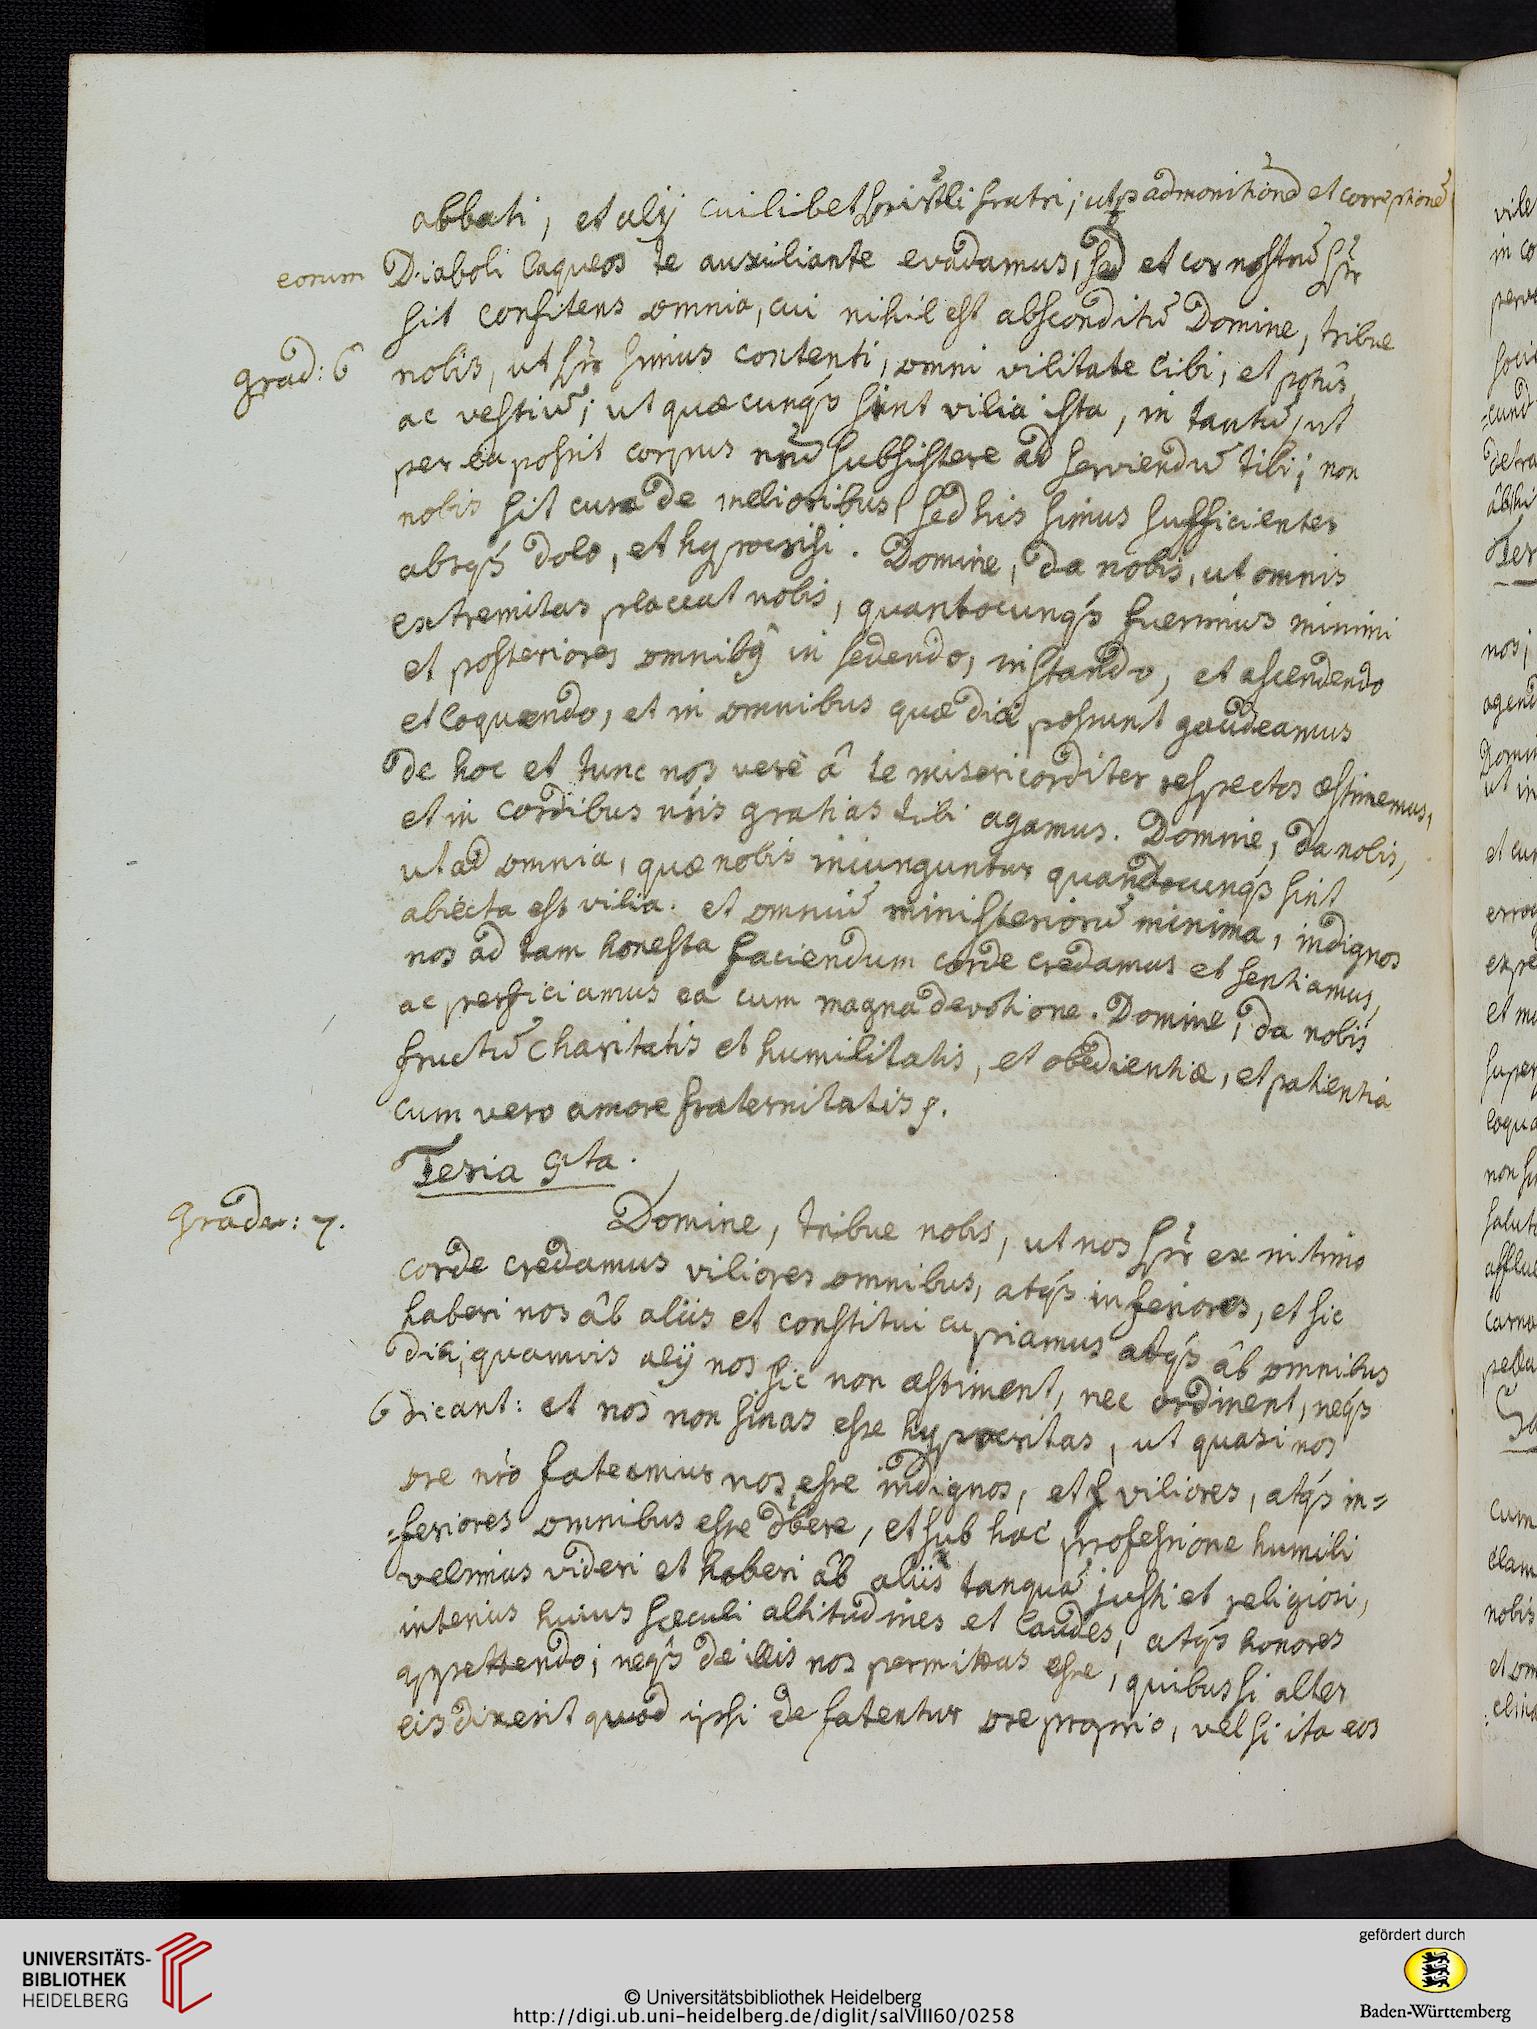 abbati, et alij cuilibet spūrtli fratri; ut p admonitionē et correptionē
eorum Diaboli laqueos te auxiliante evadamus, sed et cor nostrū spr
sit confitens omnia, cui nihil est absconditū Domine, tribue
grad: 6 nobis, ut spr simus contenti, omni vilitate cibi, et potûs
ac vestiū; ut quæcunqs sint vilia ista, in tantū, ut
per ea possit corpus nrū subsistere ad serviendū tibi; non
nobis sit cura de melioribus, sed his simus sufficienter
absqs dolo, et hypocrisi. Domine, da nobis, ut omnis
extremitas placeat nobis, quantocunqs fuerimus minimi
et posteriores omnibq in sedendo, in stando, et ascendendo
et loquendo, et in omnibus quæ dici possunt gaudeamus
de hoc et tunc nos verè â te misericorditer respectos æstimemus,
et in cordibus nris gratias tibi agamus. Domine, da nobis,
ut ad omnia, quæ nobis iniunguntur quandocunqs sint
abiecta est vilia. et omniū ministeriorū minima, indignos
nos ad tam honesta faciendum corde credamus et sentiamus,
ac perficiamus ea cum magna devotione. Domine, da nobis
fructū charitatis et humilitatis, et obedientiæ, et patientia
cum vero amore fraternitatis.
Feria 5ta.
grade: 7. Domine, tribue nobis, ut nos spr ex intimo
corde credamus viliores omnibus, atqs inferiores, et sic
haberi nos âb aliis et constitui cupiamus atqs âb omnibus
dici, quamvis alij nos sic non æstiment, nec ordinent, neqs
dicant: et nos non sinas esse hypocritas, ut quasi nos
ore nro fateamur nos esse indignos, et viliores, atqs in=
=feriores omnibus esse dbere, et sub hac professione humili
velimus videri et haberi âb aliis tanquā justi et religiosi,
interius huius sæculi altitudines et laudes, atqs honores
appetendo; neqs de illis nos permittas esse, quibus si alter
eis dixerit quod ipsi de fatentur ore proprio, vel si ita eos
UNIVERSITÄTS-
BIBLIOTHEK
HEIDELBERG
© Universitätsbibliothek Heidelberg
http://digi.ub.uni-heidelberg.de/diglit/salVIII60/0258
gefördert durch
Baden-Württemberg